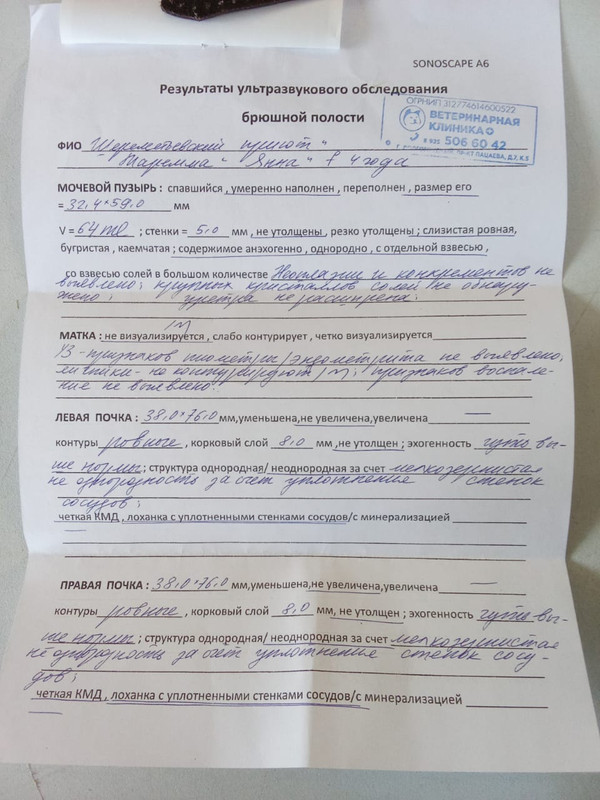 SONOSCAPE A6
Результаты ультразвукового обследования
брюшной полости
ОГРНИП 312774614600522
ВЕТЕРИНАРНАЯ
КЛИНИКА
506 60 42
ФИО Шереметьевский приют"
"Жаремма" "Янна" f 4 года
МОЧЕВОЙ ПУЗЫРЬ : спавшийся , умеренно наполнен , переполнен , размер его
= 32,4*59,0 мм
V = 64 ml ; стенки = 5,0 мм , не утолщены , резко утолщены ; слизистая ровная,
бугристая , каемчатая ; содержимое анэхогенно , однородно , с отдельной взвесью ,
со взвесью солей в большом количестве Неоплазии и конкрементов не
выявлено; крупных кристаллов солей не обнару-
жено; уретра не расширена.
МАТКА : не визуализируется , слабо контурирует , четко визуализируется
УЗ - признаков пиометры/эндометрита не выявлено;
яичники - не контурируют; признаков воспале-
ние не выявлено!
ЛЕВАЯ ПОЧКА : 38,0*76,0 мм,уменьшена,не увеличена,увеличена —
контуры ровные , корковый слой 8,0 мм ,не утолщен ; эхогенность чуть вы-
ше нормы; структура однородная/ неоднородная за счет мелкозернистая
не однородность за счет уплотнения стенок
сосудов;
четкая КМД , лоханка с уплотненными стенками сосудов/с минерализацией
ПРАВАЯ ПОЧКА : 38,0*76,0 мм,уменьшена,не увеличена,увеличена —
контуры ровные , корковый слой 8,0 мм, не утолщен ; эхогенность чуть вы-
ше нормы; структура однородная/ неоднородная за счет мелкозернистая
не однородность за счет уплотнения стенок сосу-
дов;
четкая КМД , лоханка с уплотненными стенками сосудов/с минерализацией